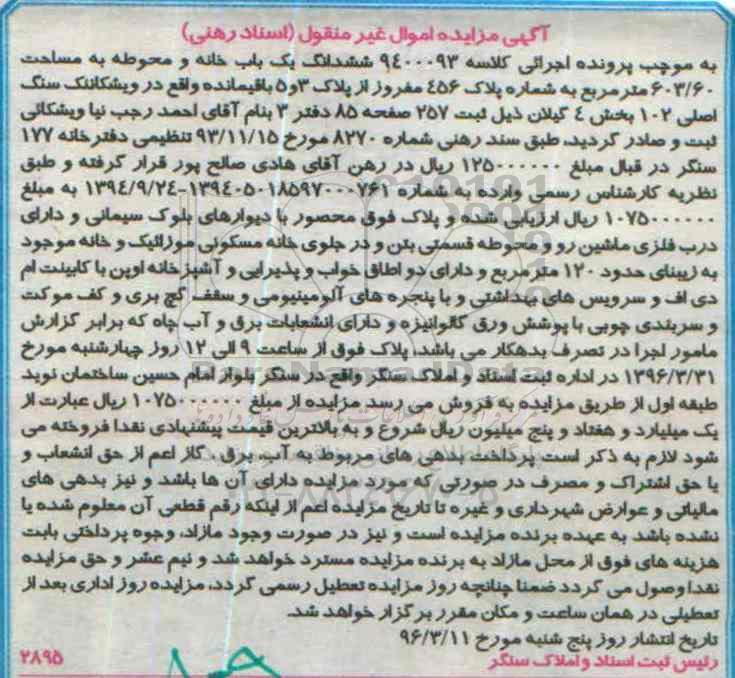 آگهی مزایده اموال غیر منقول (اسناد رهنی)
به موجب پرونده اجرائی کلاسه ۹٤۰۰۰۹۳ ششدانگ یک باب خانه و محوطه به مساحت
۶۰۳/۶۰ متر مربع به شماره پلاک ۴۵۶ مفروز از پلاک ۳و۵ باقیمانده واقع در ویشکاننک سنگ
اصلی ۱۰۲ بخش ٤ گیلان ذیل ثبت ۲۵۷ صفحه ۸۵ دفتر ۳ بنام آقای احمد رجب نیا ویشکائی
ثبت و صادر گردید، طبق سند رهنی شماره ۸۲۷۰ مورخ ۹۳/۱۱/۱۵ تنظیمی دفترخانه ۱۷۷
سنگر در قبال مبلغ ۱۲۵۰۰۰۰۰۰۰ ریال در رهن آقای هادی صالح پور قرار گرفته و طبق
نظریه کارشناس رسمی وارده به شماره ۱۳۹٤۰۵۰۱۸۵۹۷۰۰۰۷۶۱-۱۳۹٤/۹/۲٤ به مبلغ
۱۰۷۵۰۰۰۰۰۰ ریال ارزیابی شده و پلاک فوق محصور با دیوارهای بلوک سیمانی و دارای
درب فلزی ماشین رو و محوطه قسمتی بتن و در جلوی خانه مسکونی موزائیک و خانه موجود
به زیربنای حدود ۱۲۰ متر مربع و دارای دو اطاق خواب و پذیرایی و آشپزخانه اوپن با کابینت ام
دی اف و سرویس های بهداشتی و با پنجره های آلومینیومی و سقف گچ بری و کف موکت
و سربندی چوبی با پوشش ورق گالوانیزه و دارای انشعابات برق و آب چاه که برابر گزارش
مامور اجرا در تصرف بدهکار می باشد، پلاک فوق از ساعت ۹ الی ۱۲ روز چهارشنبه مورخ
۱۳۹۶/۳/۳۱ در اداره ثبت اسناد و املاک سنگر واقع در سنگر بلوار امام حسین ساختمان نوید
طبقه اول از طریق مزایده به فروش می رسد مزایده از مبلغ ۱۰۷۵۰۰۰۰۰۰ ریال عبارت از
یک میلیارد و هفتاد و پنج میلیون ریال شروع و به بالاترین قیمت پیشنهادی نقدا فروخته می
شود لازم به ذکر است پرداخت بدهی های مربوط به آب، برق، گاز اعم از حق انشعاب و
یا حق اشتراک و مصرف در صورتی که مورد مزایده دارای آن ها باشد و نیز بدهی های
مالیاتی و عوارض شهرداری و غیره تا تاریخ مزایده اعم از اینکه رقم قطعی آن معلوم شده یا
نشده باشد به عهده برنده مزایده است و نیز در صورت وجود مازاد، وجوه پرداختی بابت
هزینه های فوق از محل مازاد به برنده مزایده مسترد خواهد شد و نیم عشر و حق مزایده
نقدا وصول می گردد ضمنا چنانچه روز مزایده تعطیل رسمی گردد، مزایده روز اداری بعد از
تعطیلی در همان ساعت و مکان مقرر برگزار خواهد شد.
تاریخ انتشار روز پنج شنبه مورخ ۹۶/۳/۱۱
رئیس ثبت اسناد و املاک سنگر
۲۸۹۵